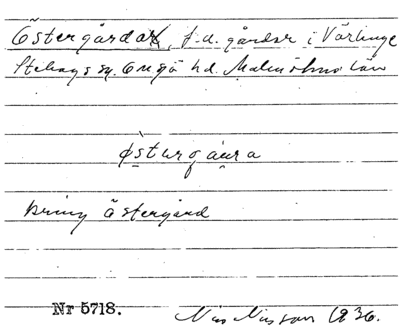 Östergårdar, f.d. gårdar i Värlinge
Stehags sn. Onsjö hd. Malmöhus län
østurgåura
kring Östergård
Nr 5718.
Nils Nilsson 1936.